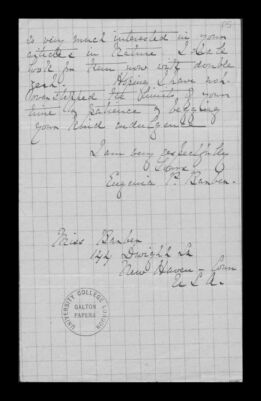 is very much interested in your
articles in Nature. I shall
look for them now with double
zest. Hoping I have not
overstepped the limits of your
time & patience & begging
your kind indulgence
I am very respectfully
Yours
Eugenia P.
Miss
Dwight St
New Haven - Conn
U.S.A.
UNIVERSITY COLLEGE LONDON
GALTON
PAPERS